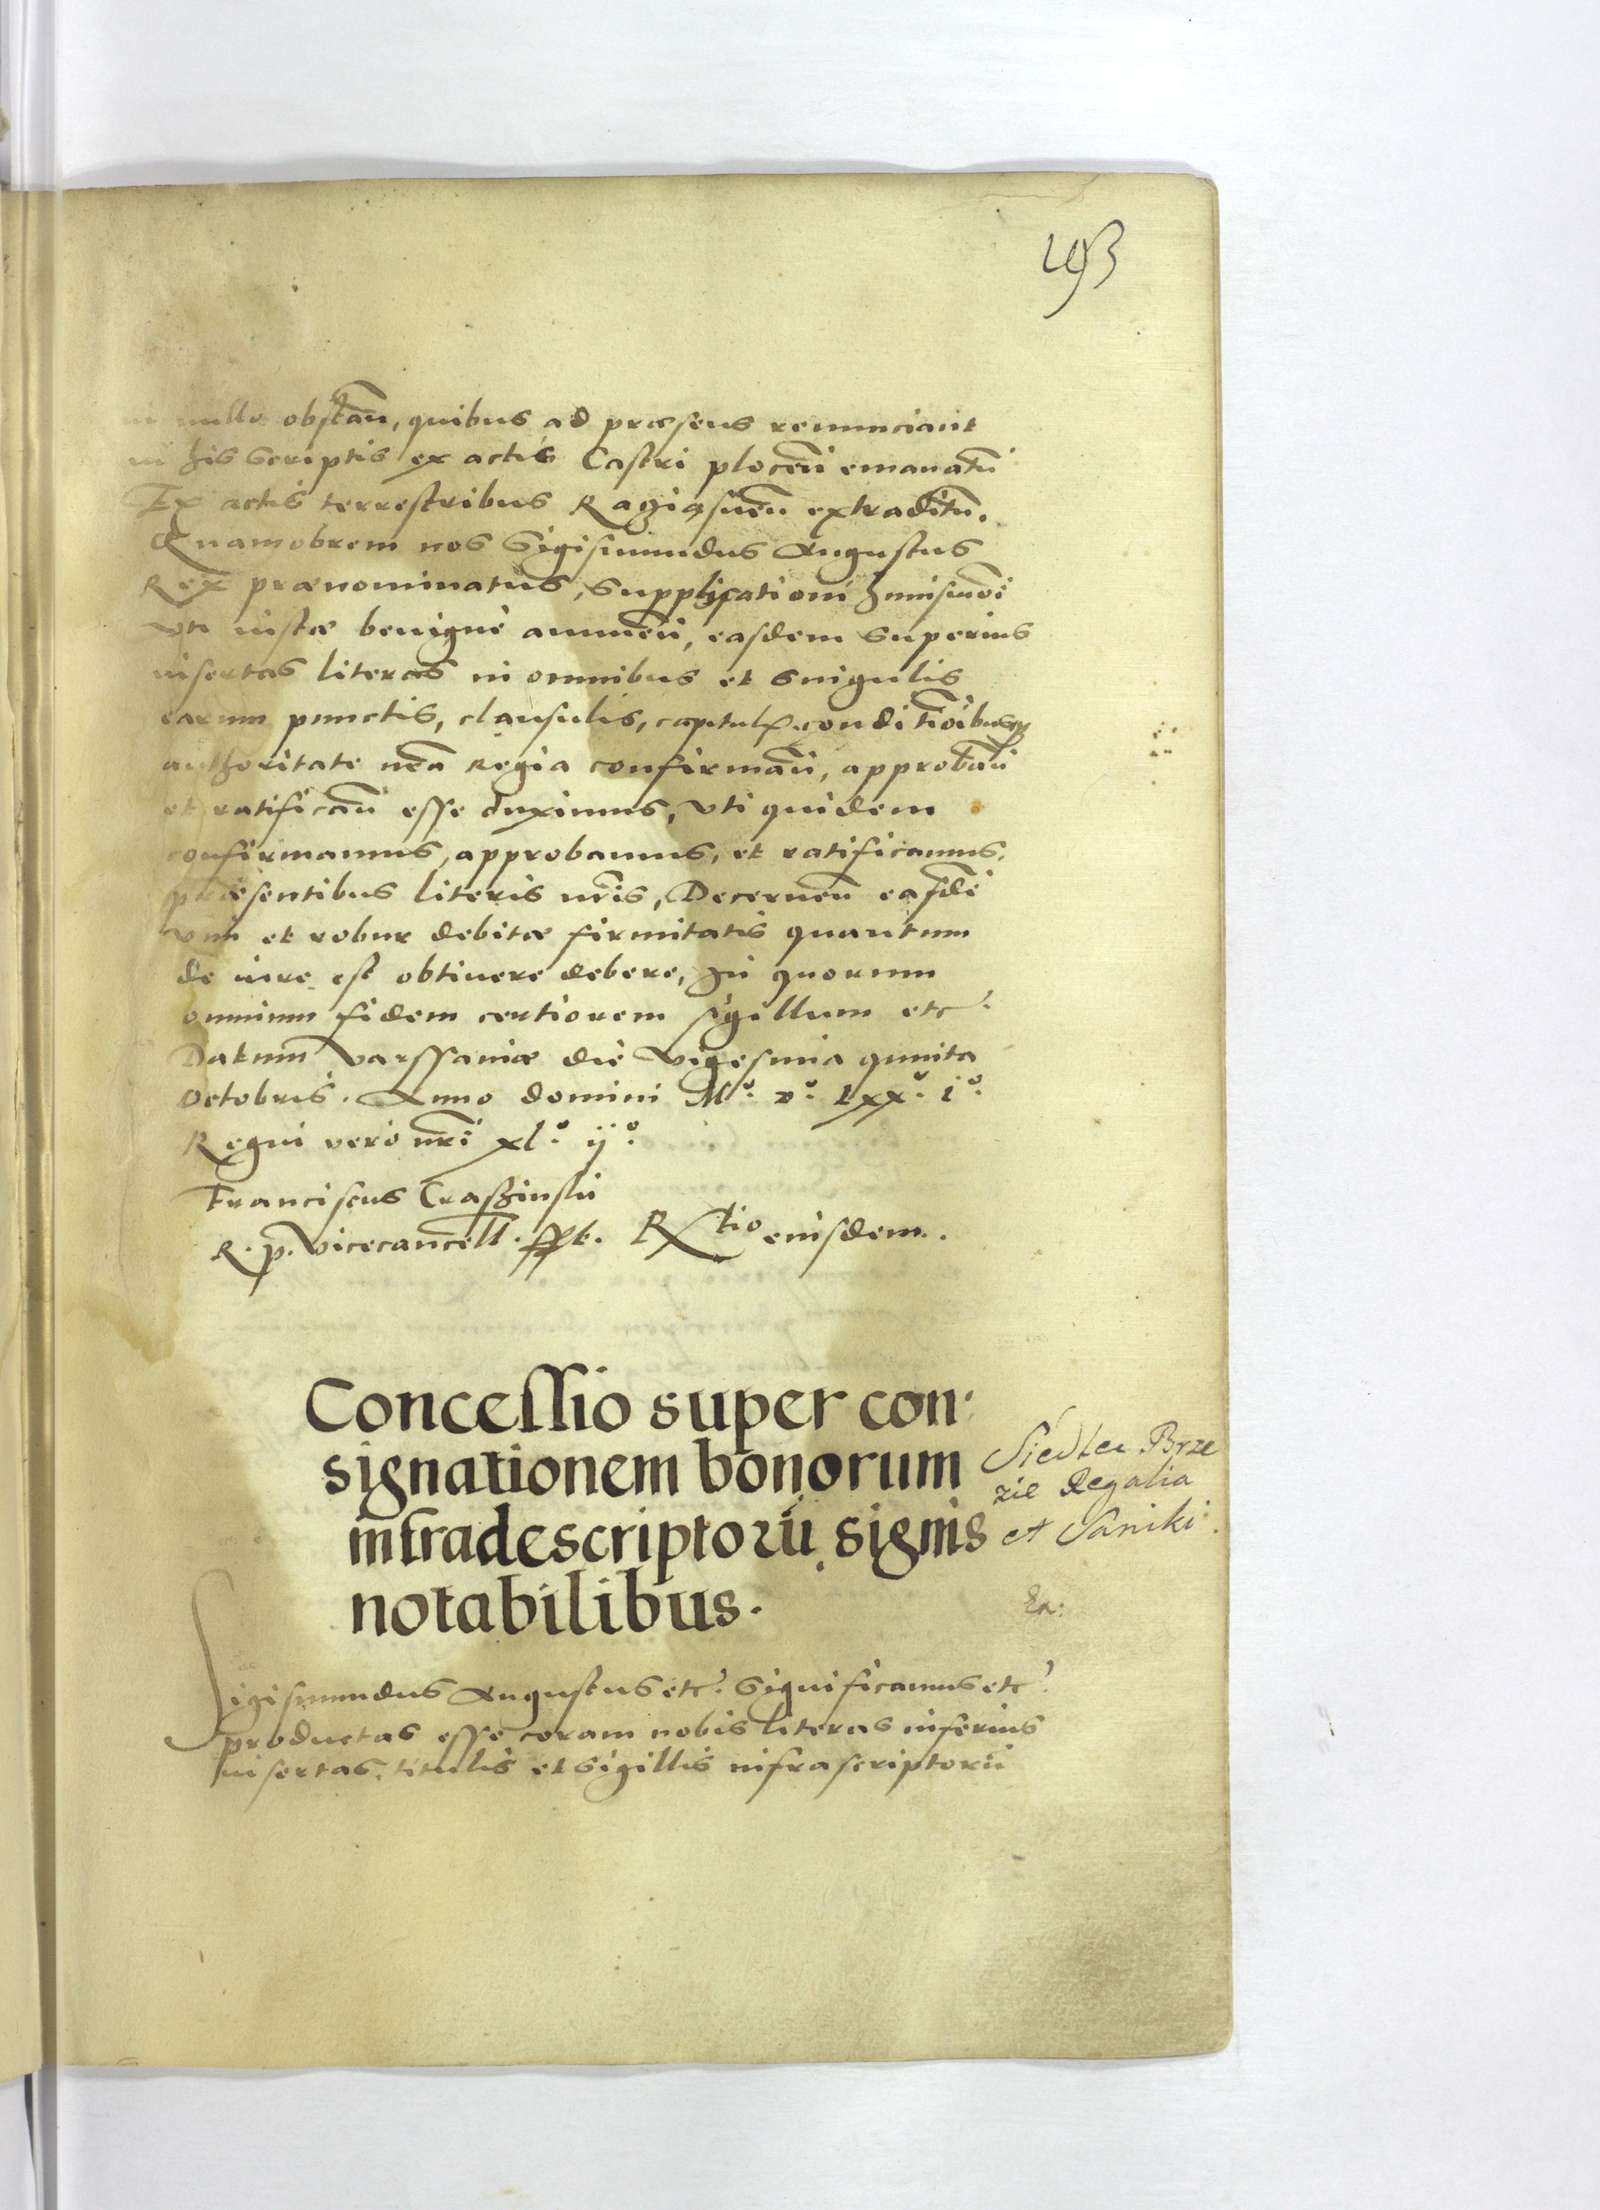 193
in nullo obstan̄, quibus ad præsens renunciavit
in his scriptis ex actis Castri ploceñ emanatū
Ex actis terrestribus Raziąsueñ extraditū.
Quamobrem nos Sigismundus Augustus
Rex prænominatus, supplicationi hmōi
vti iustæ benignè annueñ, easdem superius
insertas literas in omnibus et singulis
earum punctis, clausulis, capitul. conditioībusq
authoritate nr̄a Regia confirmañ, approbañ
et ratificañ esse duximus, vti quidem
confirmamus, approbamus, et ratificamus,
præsentibus literis nr̄is, Decerneñ easdē
vim et robur debitæ firmitatis quantum
de iure est obtinere debere, In quorum
omnium fidem certiorem sigillum etc.
Datum Varssaviæ die vigesima quinta
Octobris. Anno domini Mº. vº. lxxº. iº.
Regni vero nr̄i xlº. ijº.
Franciscus Crasszinskii
R. p. Vicecancell. sspt. R tio eiusdem.
Concessio super con
signationem bonorum
infradescriptorū signis
notabilibus.
Siedlcu Brze
zie Regalia
et Saniki.
Ea:
Sigismundus Augustus etc. Significamus etc.
productas esse coram nobis literas inferius
insertas, titulis et sigillis infrascriptorū